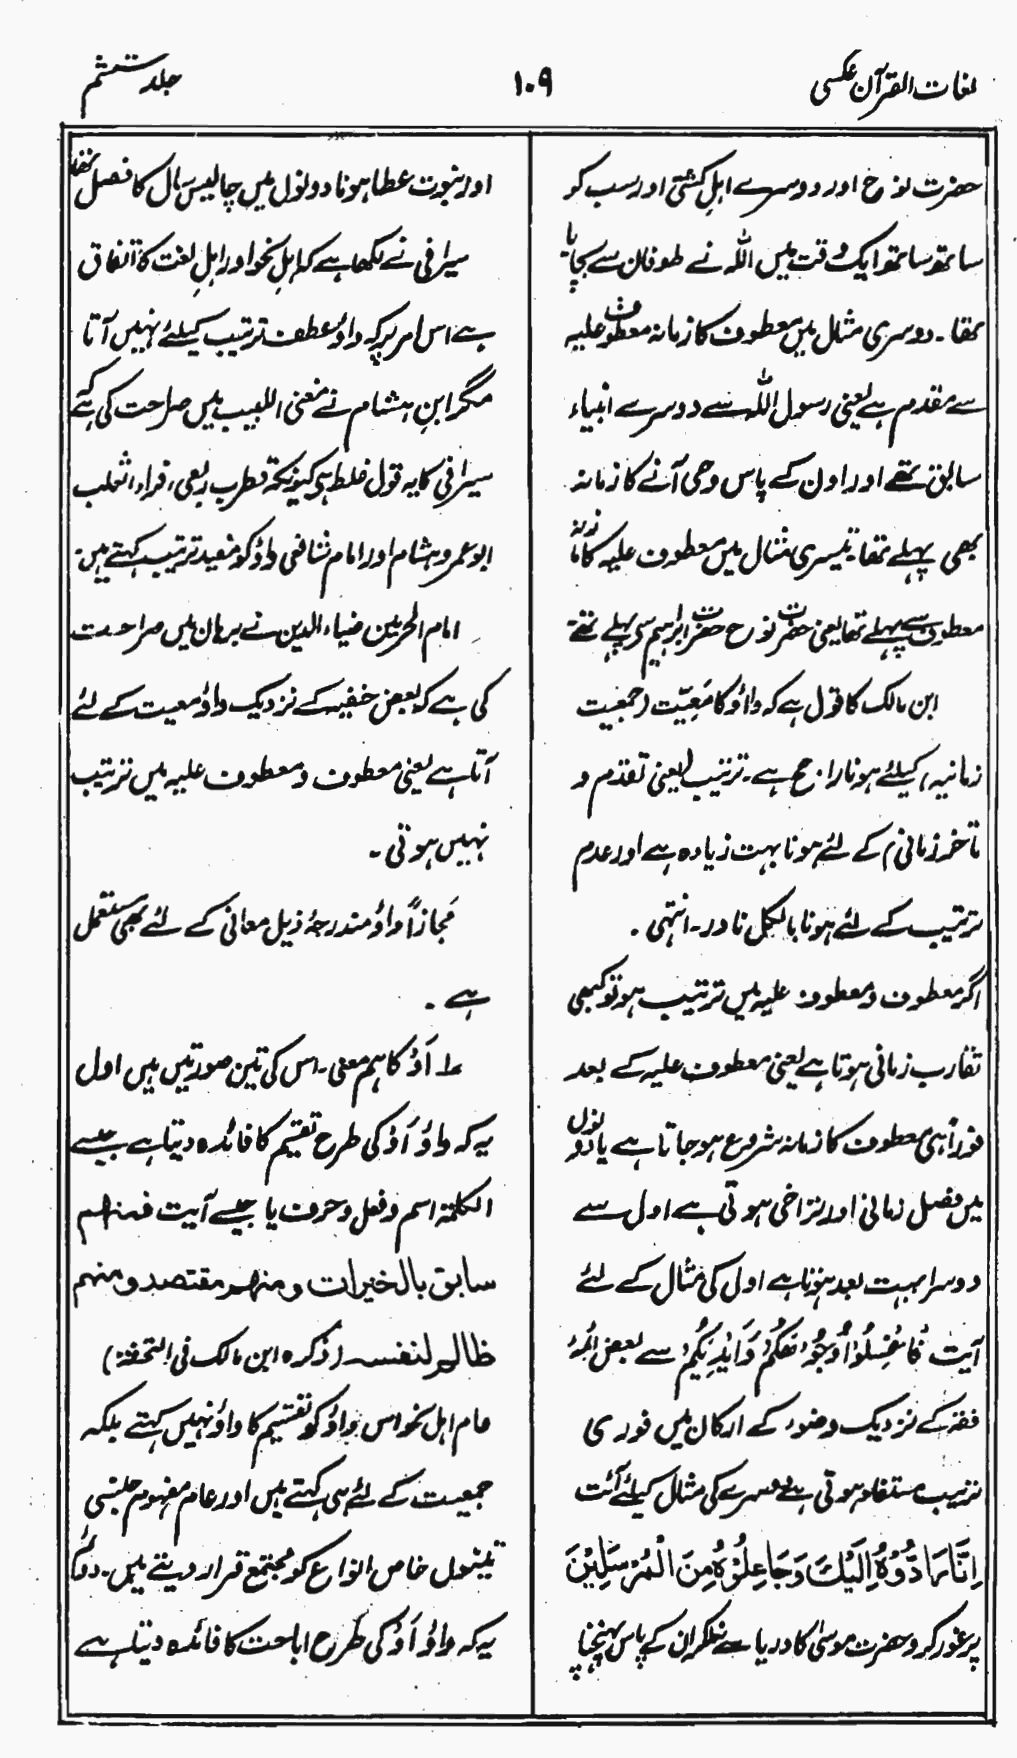 لغات القرآن عکسی
۱۰۹
جلد ششم
حضرت نوح اور دوسرے اہلِ کشتی اور سب کو
ساتھ ساتھ ایک وقت میں اللہ نے طوفان سے بچایا
تھا۔ دوسری مثال میں معطوف کا زمانہ معطوف علیہ
سے مقدم ہے یعنی رسول اللہ سے دوسرے انبیاء
سابق تھے اور اون کے پاس وحی آنے کا زمانہ
بھی پہلے تھا تیسری مثال میں معطوف علیہ کا زمانہ
معطوف سے پہلے تھا یعنی حضرت نوح حضرت ابراہیم سے پہلے تھے۔
ابن مالک کا قول ہے کہ واؤ کا مَعِیّت (جمعیت
زمانیہ) کیلئے ہونا راجح ہے۔ ترتیب یعنی تقدم و
تأخر زمانی) کے لئے ہونا بہت زیادہ ہے اور عدم
ترتیب کے لئے ہونا بالکل نادر۔ انتہی۔
اگر معطوف و معطوف علیہ میں ترتیب ہو تو کبھی
تقارب زمانی ہوتا ہے یعنی معطوف علیہ کے بعد
فوراً ہی معطوف کا زمانہ شروع ہو جاتا ہے یا دونوں
میں فصل زمانی اور تراخی ہوتی ہے اول سے
دوسرا بہت بعد ہوتا ہے اول کی مثال کے لئے
آیت فَاغْسِلُوْا وُجُوْهَكُمْ وَاَيْدِيَكُمْ سے بعض ائمۂ
فقہ کے نزدیک وضوء کے ارکان میں فوری
ترتیب مستفاد ہوتی ہے دوسرے کی مثال کیلئے آیت
اِنَّا رَادُّوْهُ اِلَيْكَ وَجَاعِلُوْهُ مِنَ الْمُرْسَلِيْنَ
پر غور کرو حضرت موسیٰ کا دریا سے نکلکر ان کے پاس پہنچنا
اور نبوت عطا ہونا دونوں میں چالیس سال کا فصل تھا
سیرافی نے لکھا ہے کہ اہلِ نحو اور اہلِ لغت کا اتفاق
ہے اس امر پر کہ واؤ عطف ترتیب کیلئے نہیں آتا
مگر ابنِ ہشام نے مغنی اللبیب میں صراحت کی ہے کہ
سیرافی کا یہ قول غلط ہے کیونکہ قطرب ربعی، فراء، ثعلب
ابو عمرو ہشام اور امام شافعی واؤ کو مفید ترتیب کہتے ہیں۔
امام الحرمین ضیاء الدین نے برہان میں صراحت
کی ہے کہ بعض حنفیہ کے نزدیک واؤ معیت کے لئے
آتا ہے یعنی معطوف و معطوف علیہ میں ترتیب
نہیں ہوتی۔
مَجازاً واؤ مندرجۂ ذیل معانی کے لئے بھی مستعمل
ہے۔
۱ اَوْ کا ہم معنی۔ اس کی تین صورتیں ہیں اول
یہ کہ واؤ اَوْ کی طرح تقسیم کا فائدہ دیتا ہے جیسے
الکلمۃ اسم وفعل وحرف یا جیسے آیت فمنہم
سابق بالخیرات ومنہم مقتصد ومنہم
ظالم لنفسہ (ذکرہ ابن مالک فی التحفۃ)
عام اہل نحو اس واؤ کو تقسیم کا واؤ نہیں کہتے بلکہ
جمعیت کے لئے ہی کہتے ہیں اور عام مفہوم جنسی
تینوں خاص انواع کو مجتمع قرار دیتے ہیں۔ دوم
یہ کہ واؤ اَوْ کی طرح اباحت کا فائدہ دیتا ہے